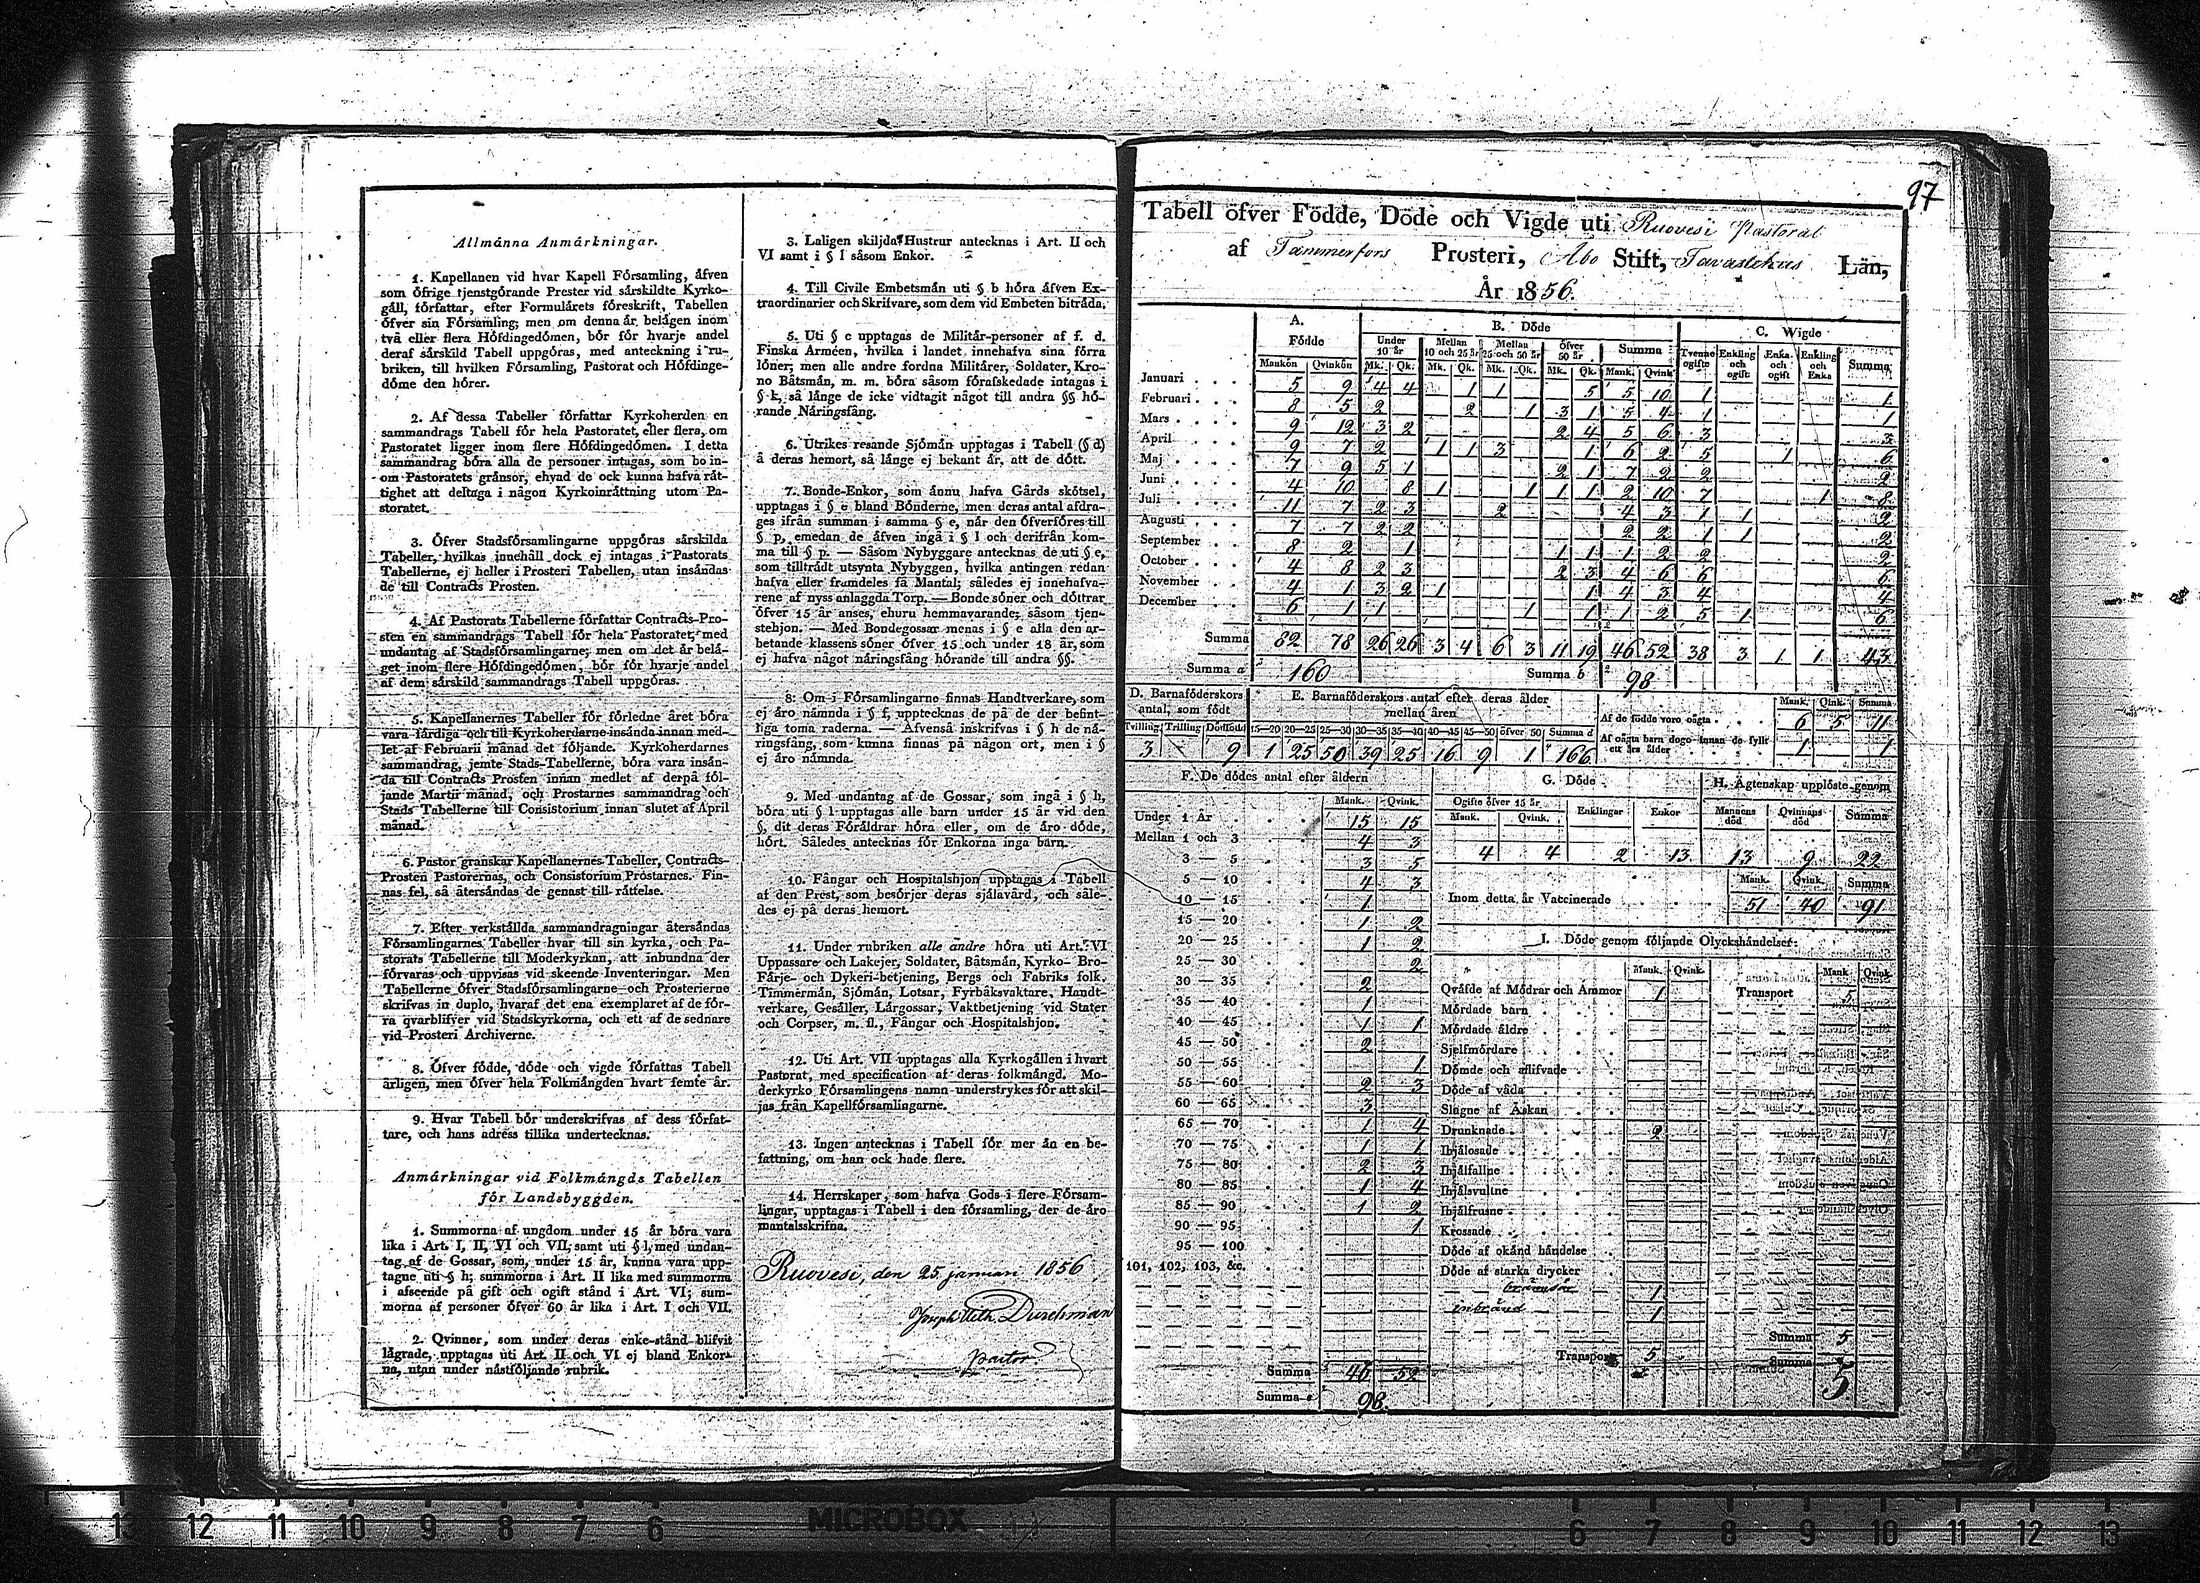 Allmänna Anmärkningar.
1. Kapellanen vid hvar Kapell Församling, äfven
som öfrige tjenstgörande Prester vid särskildte Kyrko-
gäll, författar, efter Formulärets föreskrift, Tabellen
öfver sin Församling; men om denna är belägen inom
två eller flera Höfdingedömen, bör för hvarje andel
deraf särskild Tabell uppgöras, med anteckning i ru-
briken, till hvilken Församling, Pastorat och Höfdinge-
döme den hörer.
2. Af dessa Tabeller författar Kyrkoherden en
sammandrags Tabell för hela Pastoratet, eller flera, om
Pastoratet ligger inom flere Höfdingedömen. I detta
sammandrag böra alla de personer intagas, som bo in-
om Pastoratets gränsor, ehvad de ock kunna hafva rät-
tighet att deltaga i någon Kyrkoinrättning utom Pa-
storatet.
3. Öfver Stadsförsamlingarne uppgöras särskilda
Tabeller, hvilkas innehåll dock ej intagas i Pastorats
Tabellerne, ej heller i Prosteri Tabellen, utan insändas
de till Contracts Prosten.
4. Af Pastorats Tabellerne författar Contracts-Pro-
sten en sammandrags Tabell för hela Pastoratet, med
undantag af Stadsförsamlingarne; men om det är belä-
get inom flere Höfdingedömen, bör för hvarje andel
af dem särskild sammandrags Tabell uppgöras.
5. Kapellanernes Tabeller för förledne året böra
vara färdiga och till Kyrkoherdarne insända innan med-
let af Februarii månad det följande. Kyrkoherdarnes
sammandrag, jemte Stads-Tabellerne, böra vara insän-
da till Contracts Prosten innan medlet af derpå föl-
jande Martii månad, och Prostarnes sammandrag och
Stads Tabellerne till Consistorium innan slutet af April
månad.
6. Pastor granskar Kapellanernes Tabeller, Contracts-
Prosten Pastorernas, och Consistorium Prostarnes. Fin-
nas fel, så återsändas de genast till rättelse.
7. Efter verkställda sammandragningar återsändas
Församlingarnes Tabeller hvar till sin kyrka, och Pa-
storats Tabellerne till Moderkyrkan, att inbundna der
förvaras och uppvisas vid skeende Inventeringar. Men
Tabellerne öfver Stadsförsamlingarne och Prosterierne
skrifvas in duplo, hvaraf det ena exemplaret af de för-
ra qvarblifver vid Stadskyrkorna, och ett af de sednare
vid Prosteri Archiverne.
8. Öfver födde, döde och vigde författas Tabell
årligen, men öfver hela Folkmängden hvart femte år.
9. Hvar Tabell bör underskrifvas af dess förfat-
tare, och hans adress tillika undertecknas.
Anmärkningar vid Folkmängds Tabellen
för Landsbyggden.
1. Summorna af ungdom under 15 år böra vara
lika i Art. I, II, VI och VII, samt uti § l, med undan-
tag af de Gossar, som, under 15 år, kunna vara upp-
tagne uti § h; summorna i Art. II lika med summorna
i afseende på gift och ogift stånd i Art. VI; sum-
morna af personer öfver 60 år lika i Art. I och VII.
2. Qvinnor, som under deras enke-stånd blifvit
lägrade, upptagas uti Art. II och VI ej bland Enkor-
na, utan under nästföljande rubrik.
3. Laligen skiljda Hustrur antecknas i Art. II och
VI samt i § l såsom Enkor.
4. Till Civile Embetsmän uti § b höra äfven Ex-
traordinarier och Skrifvare, som dem vid Embeten biträda.
5. Uti § c upptagas de Militär-personer af f. d.
Finska Arméen, hvilka i landet innehafva sina förra
löner; men alle andre fordna Militärer, Soldater, Kro-
no Båtsmän, m. m. böra såsom förafskedade intagas i
§ k, så länge de icke vidtagit något till andra §§ hö-
rande Näringsfång.
6. Utrikes resande Sjömän upptagas i Tabell (§ d)
å deras hemort, så länge ej bekant är, att de dött.
7. Bonde-Enkor, som ännu hafva Gårds skötsel,
upptagas i § e bland Bönderne, men deras antal afdra-
ges ifrån summan i samma § e, när den öfverföres till
§ p, emedan de äfven ingå i § l och derifrån kom-
ma till § p. — Såsom Nybyggare antecknas de uti § e,
som tillträdt utsynta Nybyggen, hvilka antingen redan
hafva eller framdeles få Mantal; således ej innehafva-
rene af nyss anlaggda Torp. — Bonde söner och döttrar
öfver 15 år anses, ehuru hemmavarande, såsom tjen-
stehjon. — Med Bondegossar menas i § e alla den ar-
betande klassens söner öfver 15 och under 18 år, som
ej hafva något näringsfång hörande till andra §§.
8. Om i Församlingarne finnas Handtverkare, som
ej äro nämnda i § f, upptecknas de på de der befint-
liga toma raderna. — Äfvenså inskrifvas i § h de nä-
ringsfång, som kunna finnas på någon ort, men i §
ej äro nämnda.
9. Med undantag af de Gossar, som ingå i § h,
böra uti § l upptagas alle barn under 15 år vid den
§, dit deras Föräldrar höra eller, om de äro döde,
hört. Således antecknas för Enkorna inga barn.
10. Fångar och Hospitalshjon upptagas i Tabell
af den Prest, som besörjer deras själavård, och såle-
des ej på deras hemort.
11. Under rubriken alle andre höra uti Art. VI
Uppassare och Lakejer, Soldater, Båtsmän, Kyrko- Bro-
Färje- och Dykeri-betjening, Bergs och Fabriks folk,
Timmermän, Sjömän, Lotsar, Fyrbåksvaktare, Handt-
verkare, Gesäller, Lärgossar, Vaktbetjening vid Stater
och Corpser, m. fl., Fångar och Hospitalshjon.
12. Uti Art. VII upptagas alla Kyrkogällen i hvart
Pastorat, med specification af deras folkmängd. Mo-
derkyrko Församlingens namn understrykes för att skil-
jas från Kapellförsamlingarne.
13. Ingen antecknas i Tabell för mer än en be-
fattning, om han ock hade flere.
14. Herrskaper, som hafva Gods i flere Försam-
lingar, upptagas i Tabell i den församling, der de äro
mantalsskrifna.
Ruovesi, den 25 januari 1856
Durchman
pastor
97
Tabell öfver Födde, Döde och Vigde uti Ruovesi Pastorat
af Tammerfors Prosteri, Åbo Stift, Tavastehus Län,
År 1856.
A. Födde B. Döde C. Wigde
Under 10 år Mellan 10 och 25 år Mellan 25 och 50 år Öfver 50 år Summa Tvenne ogifte Enkling och ogift Enka och ogift Enkling och Enka Summa
Mankön Qvinkön Mk. Qk. Mk. Qk. Mk. Qk. Mk. Qk. Mank. Qvink
Januari 5 9 4 4 1 1 5 5 10 1 1
Februari 8 5 2 2 1 3 1 5 4 1 1
Mars 9 12 3 2 2 4 5 6 3 3
April 9 7 2 1 1 3 1 6 2 5 1 6
Maj 7 9 5 1 2 1 7 2 2 2
Juni 4 10 8 1 1 1 1 2 10 7 1 8
Juli 11 7 2 3 2 4 3 1 1 2
Augusti 7 7 2 2 2 2 1 1 2
September 8 2 1 1 1 1 2 2 2
October 4 8 2 3 2 3 4 6 6 6
November 4 1 3 2 1 1 4 3 4 4
December 6 1 1 1 1 1 2 5 1 6
Summa 82 78 26 26 3 4 6 3 11 19 46 52 38 3 1 1 43
Summa a 160 Summa b 98
D. Barnaföderskors antal, som födt
Tvilling Trilling Dödfödd
3 9
E. Barnaföderskors antal efter deras ålder
mellan åren
15—20 20—25 25—30 30—35 35—40 40—45 45—50 öfver 50 Summa d
1 25 50 39 25 16 9 1 166
Mank. Qvink. Summa
Af de födde voro oägta 6 5 11
Af oägta barn dogo innan de fyllt
ett års ålder 1 1
F. De dödes antal efter åldern
Mank. Qvink.
Under 1 År 15 15
Mellan 1 och 3 4 3
3 — 5 3 5
5 — 10 4 3
10 — 15 1
15 — 20 1 2
20 — 25 1 2
25 — 30 2
30 — 35 2
35 — 40 1
40 — 45 1 1
45 — 50 2
50 — 55 1
55 — 60 2 3
60 — 65 3
65 — 70 1 4
70 — 75 1 1
75 — 80 2 3
80 — 85 1 4
85 — 90 1 2
90 — 95 1
95 — 100
101, 102, 103, &c.
Summa 46 52
Summa e 98.
G. Döde
Ogifte öfver 15 år Enklingar Enkor
Mank. Qvink.
4 4 2 13
H. Ägtenskap upplöste genom
Mannens död Qvinnans död Summa
13 9 22
Mank. Qvink. Summa
Inom detta år Vaccinerade 51 40 91
I. Döde genom följande Olyckshändelser:
Mank. Qvink. Mank. Qvink.
Qväfde af Mödrar och Ammor 1
Transport 5
Mördade barn
Mördade äldre
Sjelfmördare
Dömde och aflifvade
Döde af våda
Slagne af Åskan
Drunknade 2
Ihjälosade
Ihjälfallne
Ihjälsvultne
Ihjälfrusne
Krossade
Döde af okänd händelse
Döde af starka drycker
1
1
Transport 5
Summa 5
Summa
5
MICROBOX
13 12 11 10 9 8 7 6
6 7 8 9 10 11 12 13